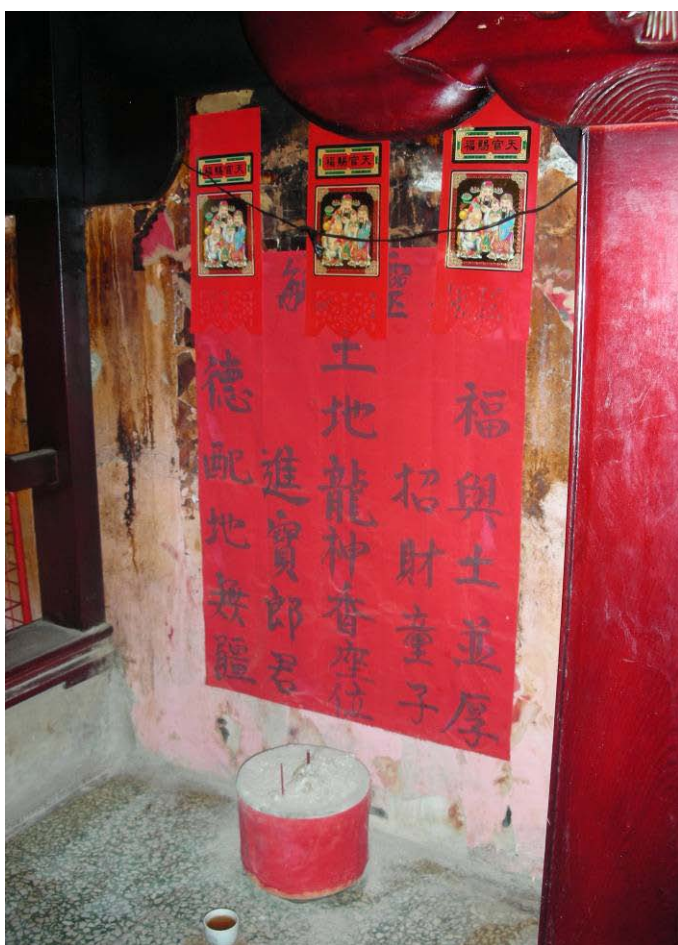 天官賜福
天官賜福
天官賜福
福與土並厚
招財童子
土地龍神香座位
進寶郎君
德配地無疆